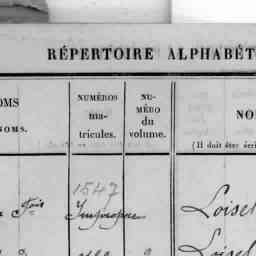 RÉPERTOIRE ALPHABÉT
OMS
NOMS.
NUMÉROS
ma-
tricules.
NU-
MÉRO
du
volume.
NO
(Il doit être écri
1547
fois Impropre
Loisel
Loisel